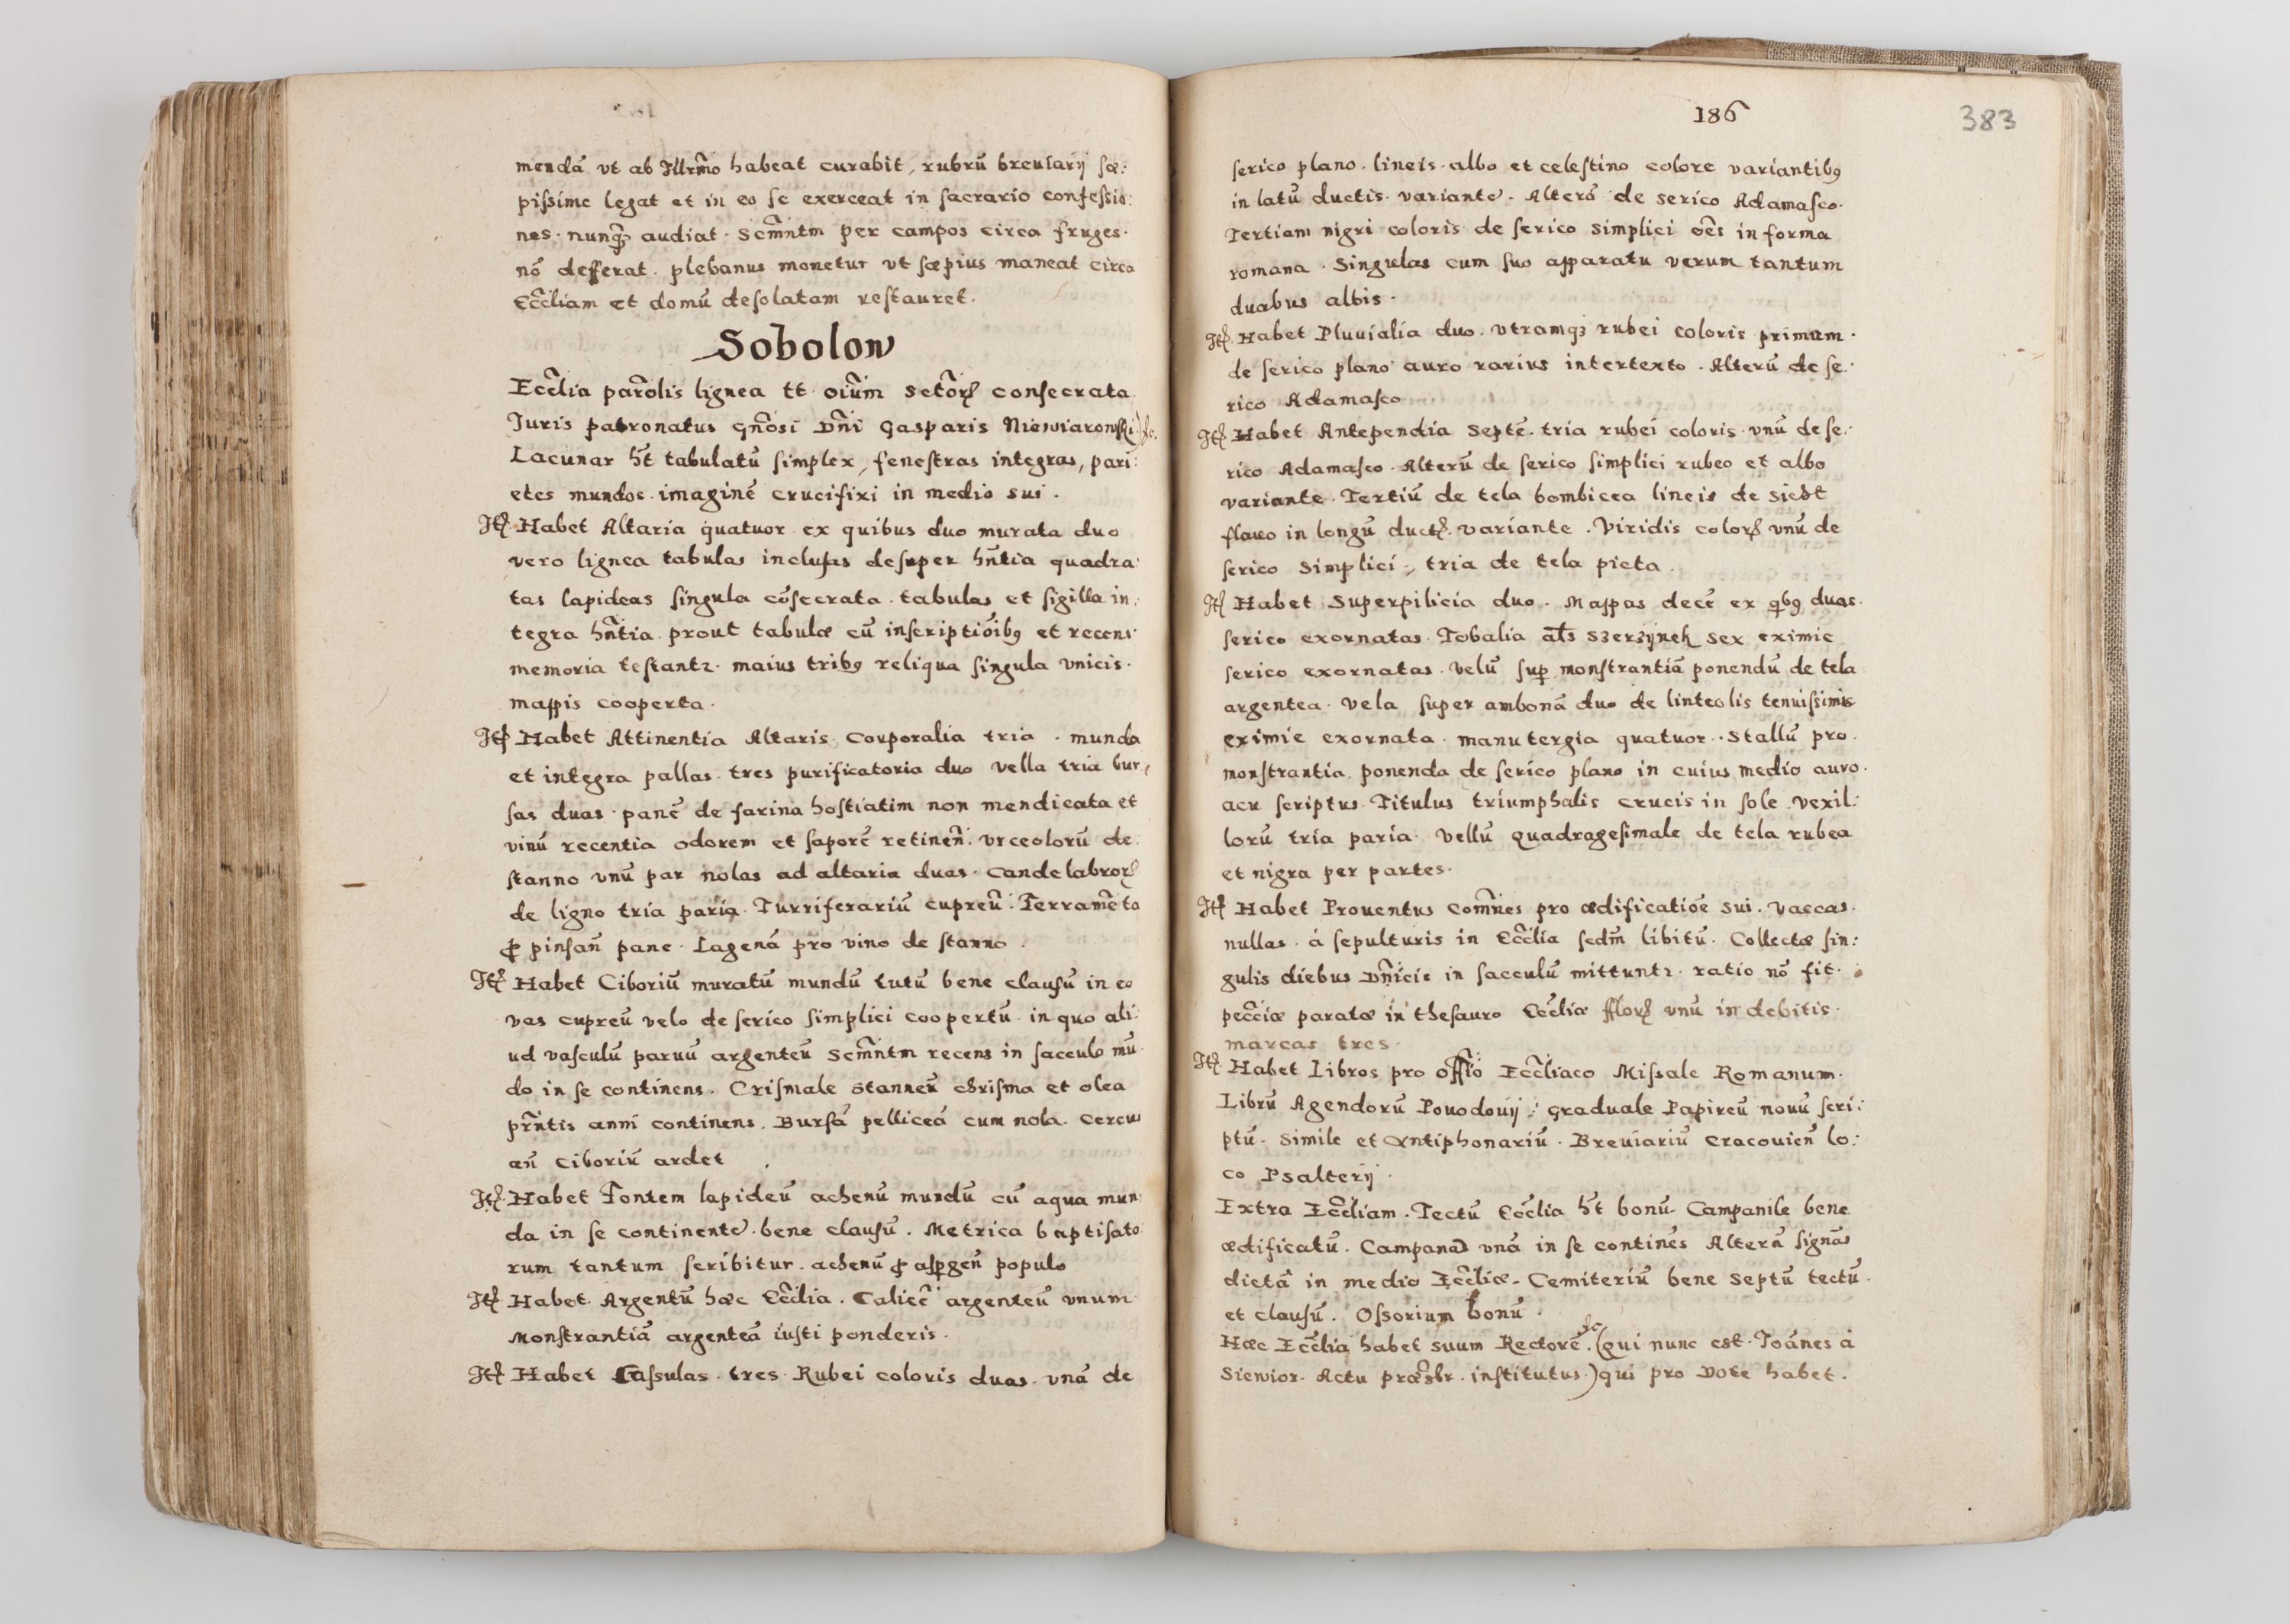 mendā vt ab Illrm̃o habeat curabit, rubrū breuiarij sæ:
pissime legat et in eo se exerceat in sacrario confessio:
nes. nunq̃ꝫ audiat. Scm̃ntm per campos circa fruges.
nō defferat. plebanus monetur vt sæpius maneat circa
Ecc̃liam et domū desolatam restauret.
Sobolow
Ecc̃lia par̃olis lignea tt oiũm sctõrꝝ consecrata
Juris patronatus gñosi Dñi Gasparis Niewiarowski) &c.
Lacunar h̃t tabulatū simplex, fenestras integras, pari:
etes mundos. imaginē crucifixi in medio sui.
Itꝫ. Habet Altaria quatuor ex quibus duo murata duo
vero lignea tabulas inclusas desuper hñtia quadra:
tas lapideas singula cōsecrata. tabulas et sigilla in:
tegra hñtia. prout tabulæ cū inscriptiōibꝰ et recens
memoria testantꝛ. maius tribꝰ reliqua singula vnicis.
mappis cooperta.
Itꝫ Habet Attinentia Altaris, Corporalia tria. munda
et integra pallas. tres purificatoria duo vella tria bur,
sas duas. panē de farina hostiatim non mendicata et
vinū recentia odorem et saporē retineñ. vrceolorū de
stanno vnū par nolas ad altaria duas. Candelabrorꝝ
de ligno tria paria. Turriferariū cupreũ. Ferramẽta
ꝓ pinsañ pane. Lagenā pro vino de stanno.
Itꝫ Habet Ciboriū muratū mundū tutū bene clausū in eo
vas cupreū velo de serico simplici coopertū. in quo ali:
ud vasculū paruū argenteū Scm̃ntm recens in sacculo mū
do in se continens. Crismale stanneū chrisma et olea
prñtis anni continens. Bursā pelliceā cum nola. Cereus
añ Ciboriū ardet
Itꝫ. Habet Fontem lapideū achenū mundū cū aqua mun:
da in se continente. bene clausū. Metrica baptisato
rum tantum scribitur. achenū ꝓ aspgeñ populo
Itꝫ. Habet. Argentū hæc Ecc̃lia. Calicē argenteū vnum
Monstrantiā argenteā iusti ponderis.
Itꝫ Habet Cassulas. tres. Rubei coloris duas. vnā de
186
383
serico plano. lineis. albo et celestino colore variantibꝰ
in latū ductis. variante. Alterā de serico Adamasco.
Tertiam nigri coloris de serico simplici oẽs in forma
romana. Singulas cum suo apparatu verum tantum
duabus albis.
Itꝫ. Habet Pluuialia duo. vtramqꝫ rubei coloris primum.
de serico plano auro rarius intertexto. Alterū de se:
rico Adamasco
Itꝫ Habet Antependia septē. tria rubei coloris. vnū de se:
rico Adamasco. Alterū de serico simplici rubeo et albo
variante. Tertiū de tela bombicea lineis de
flauo in longū ductꝫ. variante. Viridis colorꝫ vnū de
serico simplici, tria de tela picta.
Itꝫ Habet Superpilicia duo. Mappas decē ex qibꝰ duas.
serico exornatas. Tobalia als̃ szerzynek sex eximie
serico exornatas. velū sup monstrantiā ponendū de tela
argentea. vela super ambonā duo de linteolis tenuissimis
eximie exornata. manutergia quatuor. Stallū pro
monstrantia ponenda de serico plano in cuius medio auro.
acu scriptus. Titulus triumphalis crucis in sole. vexil:
lorū tria paria. Vellū quadragesimale de tela rubea
et nigra per partes.
Itꝫ Habet Prouentus com̃nes pro ædificatiōe sui. Vaccas.
nullas. à sepulturis in Ecc̃lia sedm̃ libitū. Collectæ sin:
gulis diebus Dñicis in sacculū mittuntꝛ. ratio nō fit.
pecc̃iæ paratæ in thesauro Ecc̃liæ fflorꝫ vnū in debitis.
marcas tres.
Itꝫ. Habet Libros pro offĩo Ecc̃liaco Missale Romanum.
Librū Agendorū Pouodouij: graduale Papireū nouū scri:
ptū. simile et Antiphonariū. Breuiariū Cracouieñ lo:
co Psalterij.
Extra Ecc̃liam. Tectū Ecc̃lia h̃t bonū. Campanile bene
ædificatū. Campanas vnā in se continēs Alterā signās
dictā in medio Ecc̃liæ. Cemiteriū bene septū tectū.
et clausū. Ossorium bonū.
Hæc Ecc̃lia habet suum Rectorē. &c (qui nunc est. Joānes à
Siewior. Actu præsbr. institutus.) qui pro Dote habet.